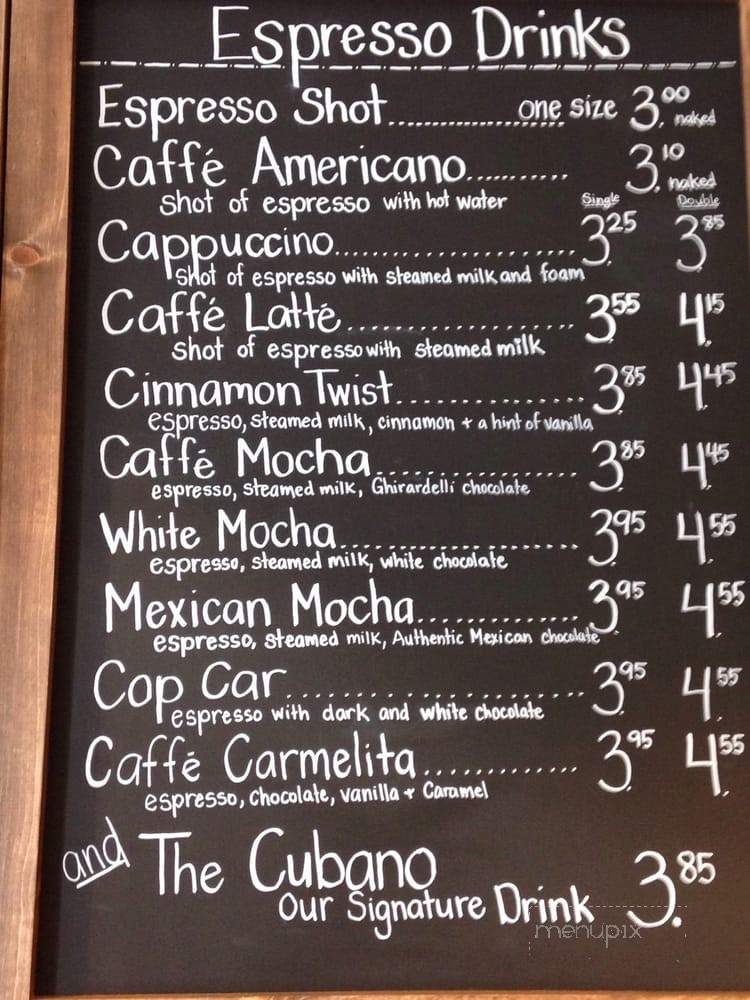 Espresso Drinks
Espresso Shot.................... one size 3.00 naked
Caffé Americano.......... 3.10 naked
Shot of espresso with hot water Single Double
Cappuccino........................ 3.25 3.85
Shot of espresso with steamed milk and foam
Caffé Latté....................... 3.55 4.15
Shot of espresso with steamed milk
Cinnamon Twist................. 3.85 4.45
espresso, steamed milk, cinnamon + a hint of vanilla
Caffé Mocha.................... 3.85 4.45
espresso, steamed milk, Ghirardelli chocolate
White Mocha........................ 3.95 4.55
espresso, steamed milk, white chocolate
Mexican Mocha............... 3.95 4.55
espresso, steamed milk, Authentic Mexican chocolate
Cop Car.......................... 3.95 4.55
espresso with dark and white chocolate
Caffé Carmelita............. 3.95 4.55
espresso, chocolate, vanilla + Caramel
and The Cubano 3.85
Our Signature Drink
menupix